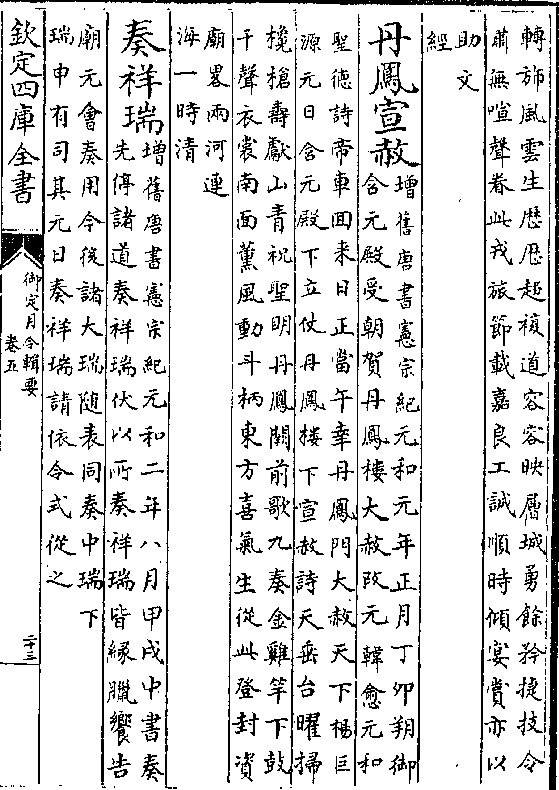 轉斾風雲生歷歷超複道容容映層城勇餘矜捷技令
肅無喧聲眷此戎旅節載嘉良工誠順時傾宴賞亦以
助文
經
丹鳳宣赦增舊唐書憲宗紀元和元年正月丁卯朔御
含元殿受朝賀丹鳳樓大赦改元韓愈元和
聖德詩帝車回來日正當午幸丹鳳門大赦天下楊巨
源元日含元殿下立仗丹鳳樓下宣赦詩天垂台曜掃
欃槍壽獻山青祝聖明丹鳳闕前歌九奏金雞竿下鼓
千聲衣裳南面薰風動斗柄東方喜氣生從此登封資
廟畧兩河連
海一時清
奏祥瑞增舊唐書憲宗紀元和二年八月甲戌中書奏
先停諸道奏祥瑞伏以所奏祥瑞皆緣臘饗告
廟元會奏用今後諸大瑞隨表同奏中瑞下
瑞申有司其元日奏祥瑞請依令式從之
欽定四庫全書
御定月令輯要
卷五
二十三